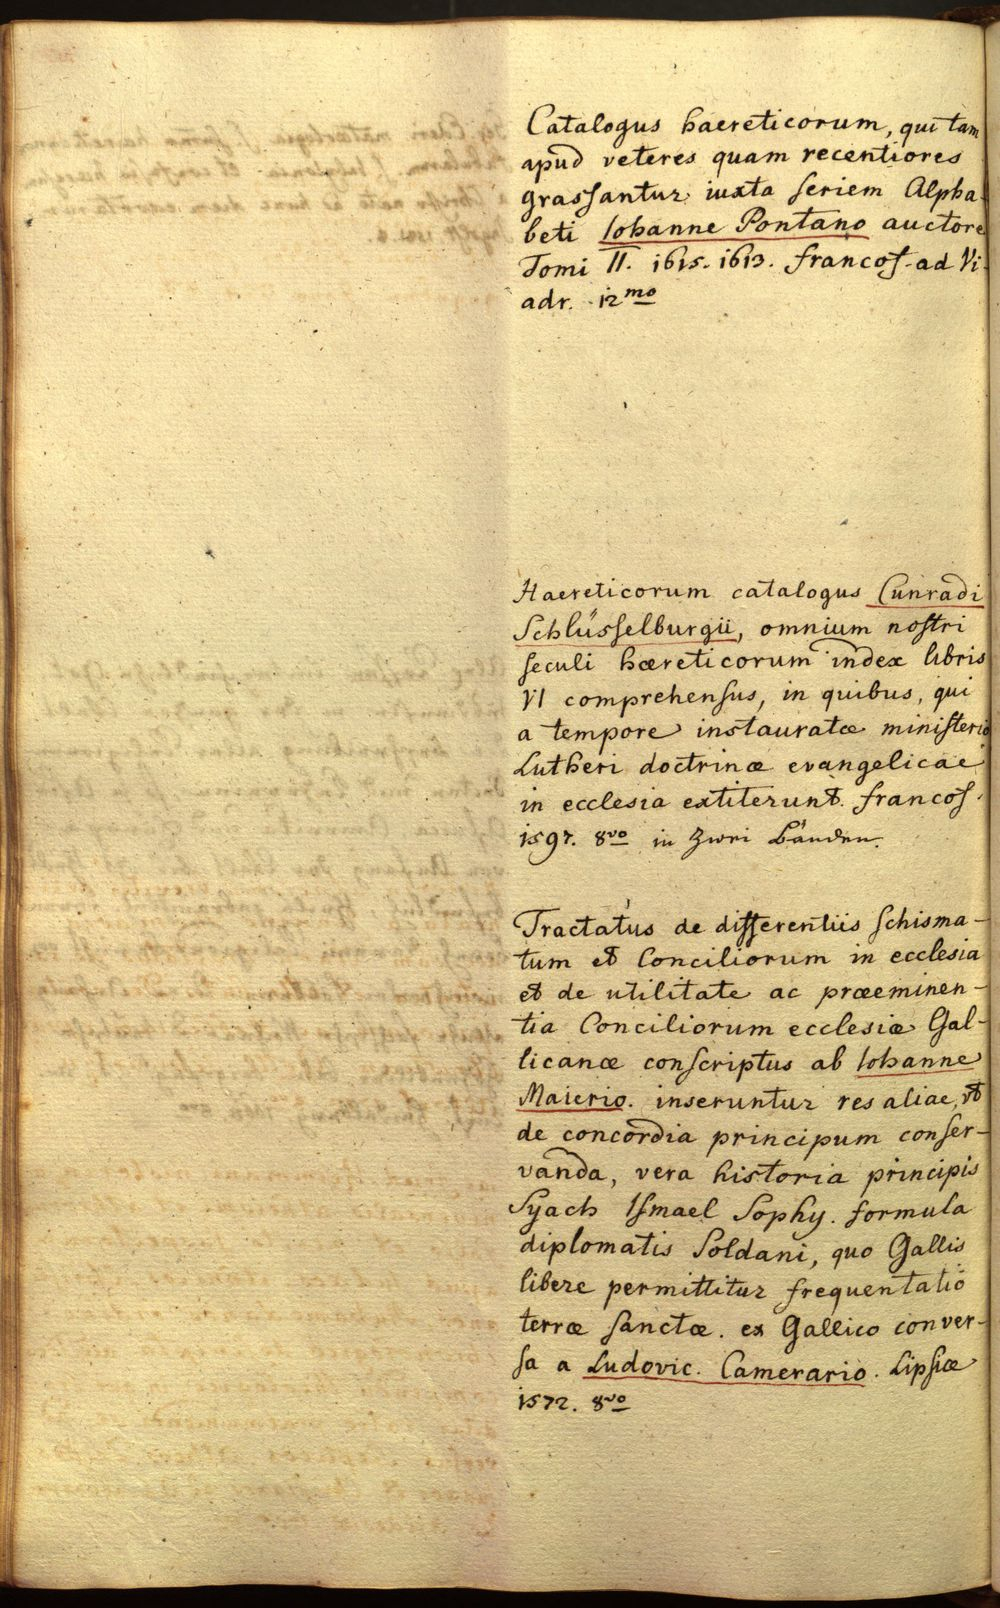 Catalogus haereticorum, qui tam
apud veteres quam recentiores
grassantur iuxta seriem Alpha-
beti Iohanne Pontano auctore
Tomi II. 1615. 1613. francof. ad Vi-
adr. 12mo
Haereticorum catalogus Cunradi
Schlüsselburgii, omnium nostri
seculi hæreticorum index libris
VI comprehensus, in quibus, qui
a tempore instauratæ ministerio
Lutheri doctrinæ evangelicae
in ecclesia extiterunt. francof.
1597. 8vo in Zwei Bänden.
Tractatus de differentiis schisma-
tum et Conciliorum in ecclesia
et de utilitate ac præeminen-
tia Conciliorum ecclesiæ Gal-
licanæ conscriptus ab Iohanne
Maierio. inseruntur res aliae, ut
de concordia principum conser-
vanda, vera historia principis
Syach Ismael Sophy. formula
diplomatis Soldani, quo Gallis
libere permittitur frequentatio
terræ sanctæ. ex Gallico conver-
sa a Ludovic. Camerario. Lipsiæ
1572. 8vo